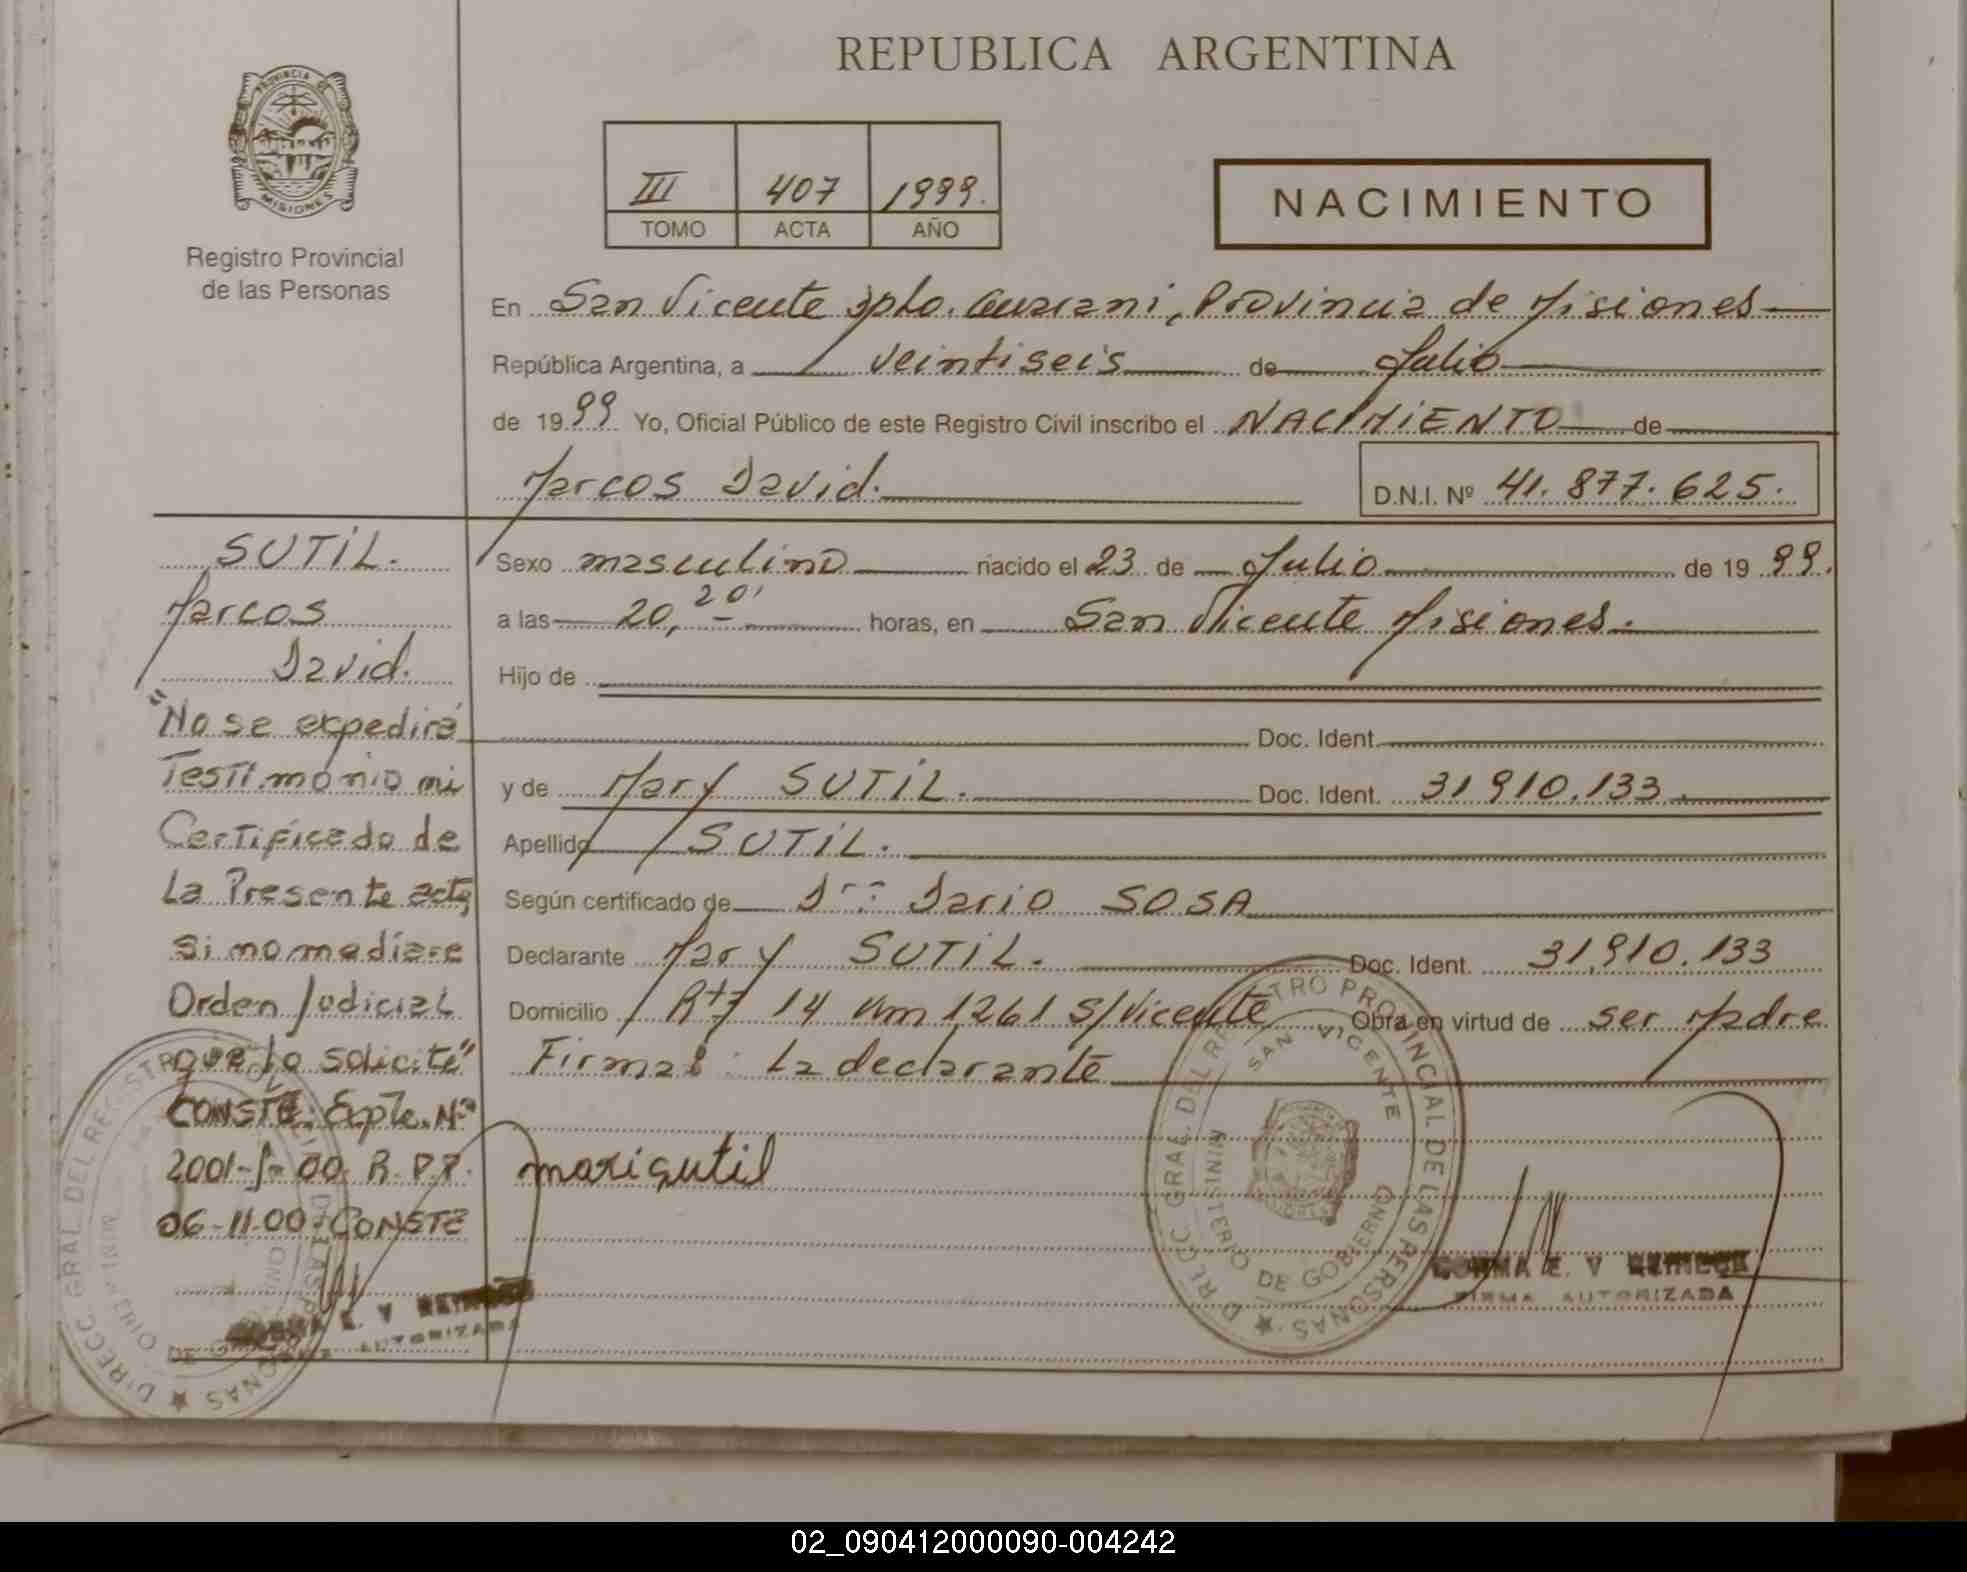 REPUBLICA ARGENTINA
PROVINCIA DE
MISIONES
Registro Provincial
de las Personas
III 407 1999.
TOMO ACTA AÑO
NACIMIENTO
En San Vicente Dpto. Guarani, Provincia de Misiones
República Argentina, a veintiseis de Julio
de 1999 Yo, Oficial Público de este Registro Civil inscribo el NACIMIENTO de
Marcos David.
D.N.I. Nº 41.877.625.
Sexo masculino nacido el 23 de Julio de 1999.
a las 20,20' horas, en San Vicente Misiones.
Hijo de
Doc. Ident.
y de Mary SUTiL. Doc. Ident. 31910.133.
Apellido SUTiL.
Según certificado de Dario SOSA
Declarante Mary SUTiL. Doc. Ident. 31.910.133
Domicilio Rta 14 Km 1261 S/Vicente Obra en virtud de ser Madre
Firma: La declarante
mari sutil
SUTiL.
Marcos
David.
"No se expedirá
Testimonio ni
Certificado de
La Presente acta,
Si no mediare
Orden Judicial
que lo solicite"
CONSTE: Expte. Nº
2001-S-00 R.P.P.
06-11-00 CONSTE
DIRECC. GRAL. DEL REGISTRO PROVINCIAL DE LAS PERSONAS
SAN VICENTE
MINISTERIO DE GOBIERNO
NORMA E. V REINECK
FIRMA AUTORIZADA
DIRECC. GRAL DEL REGISTRO PROVINCIAL DE LAS PERSONAS
NORMA E. V REINECK
AUTORIZADA
02_090412000090-004242